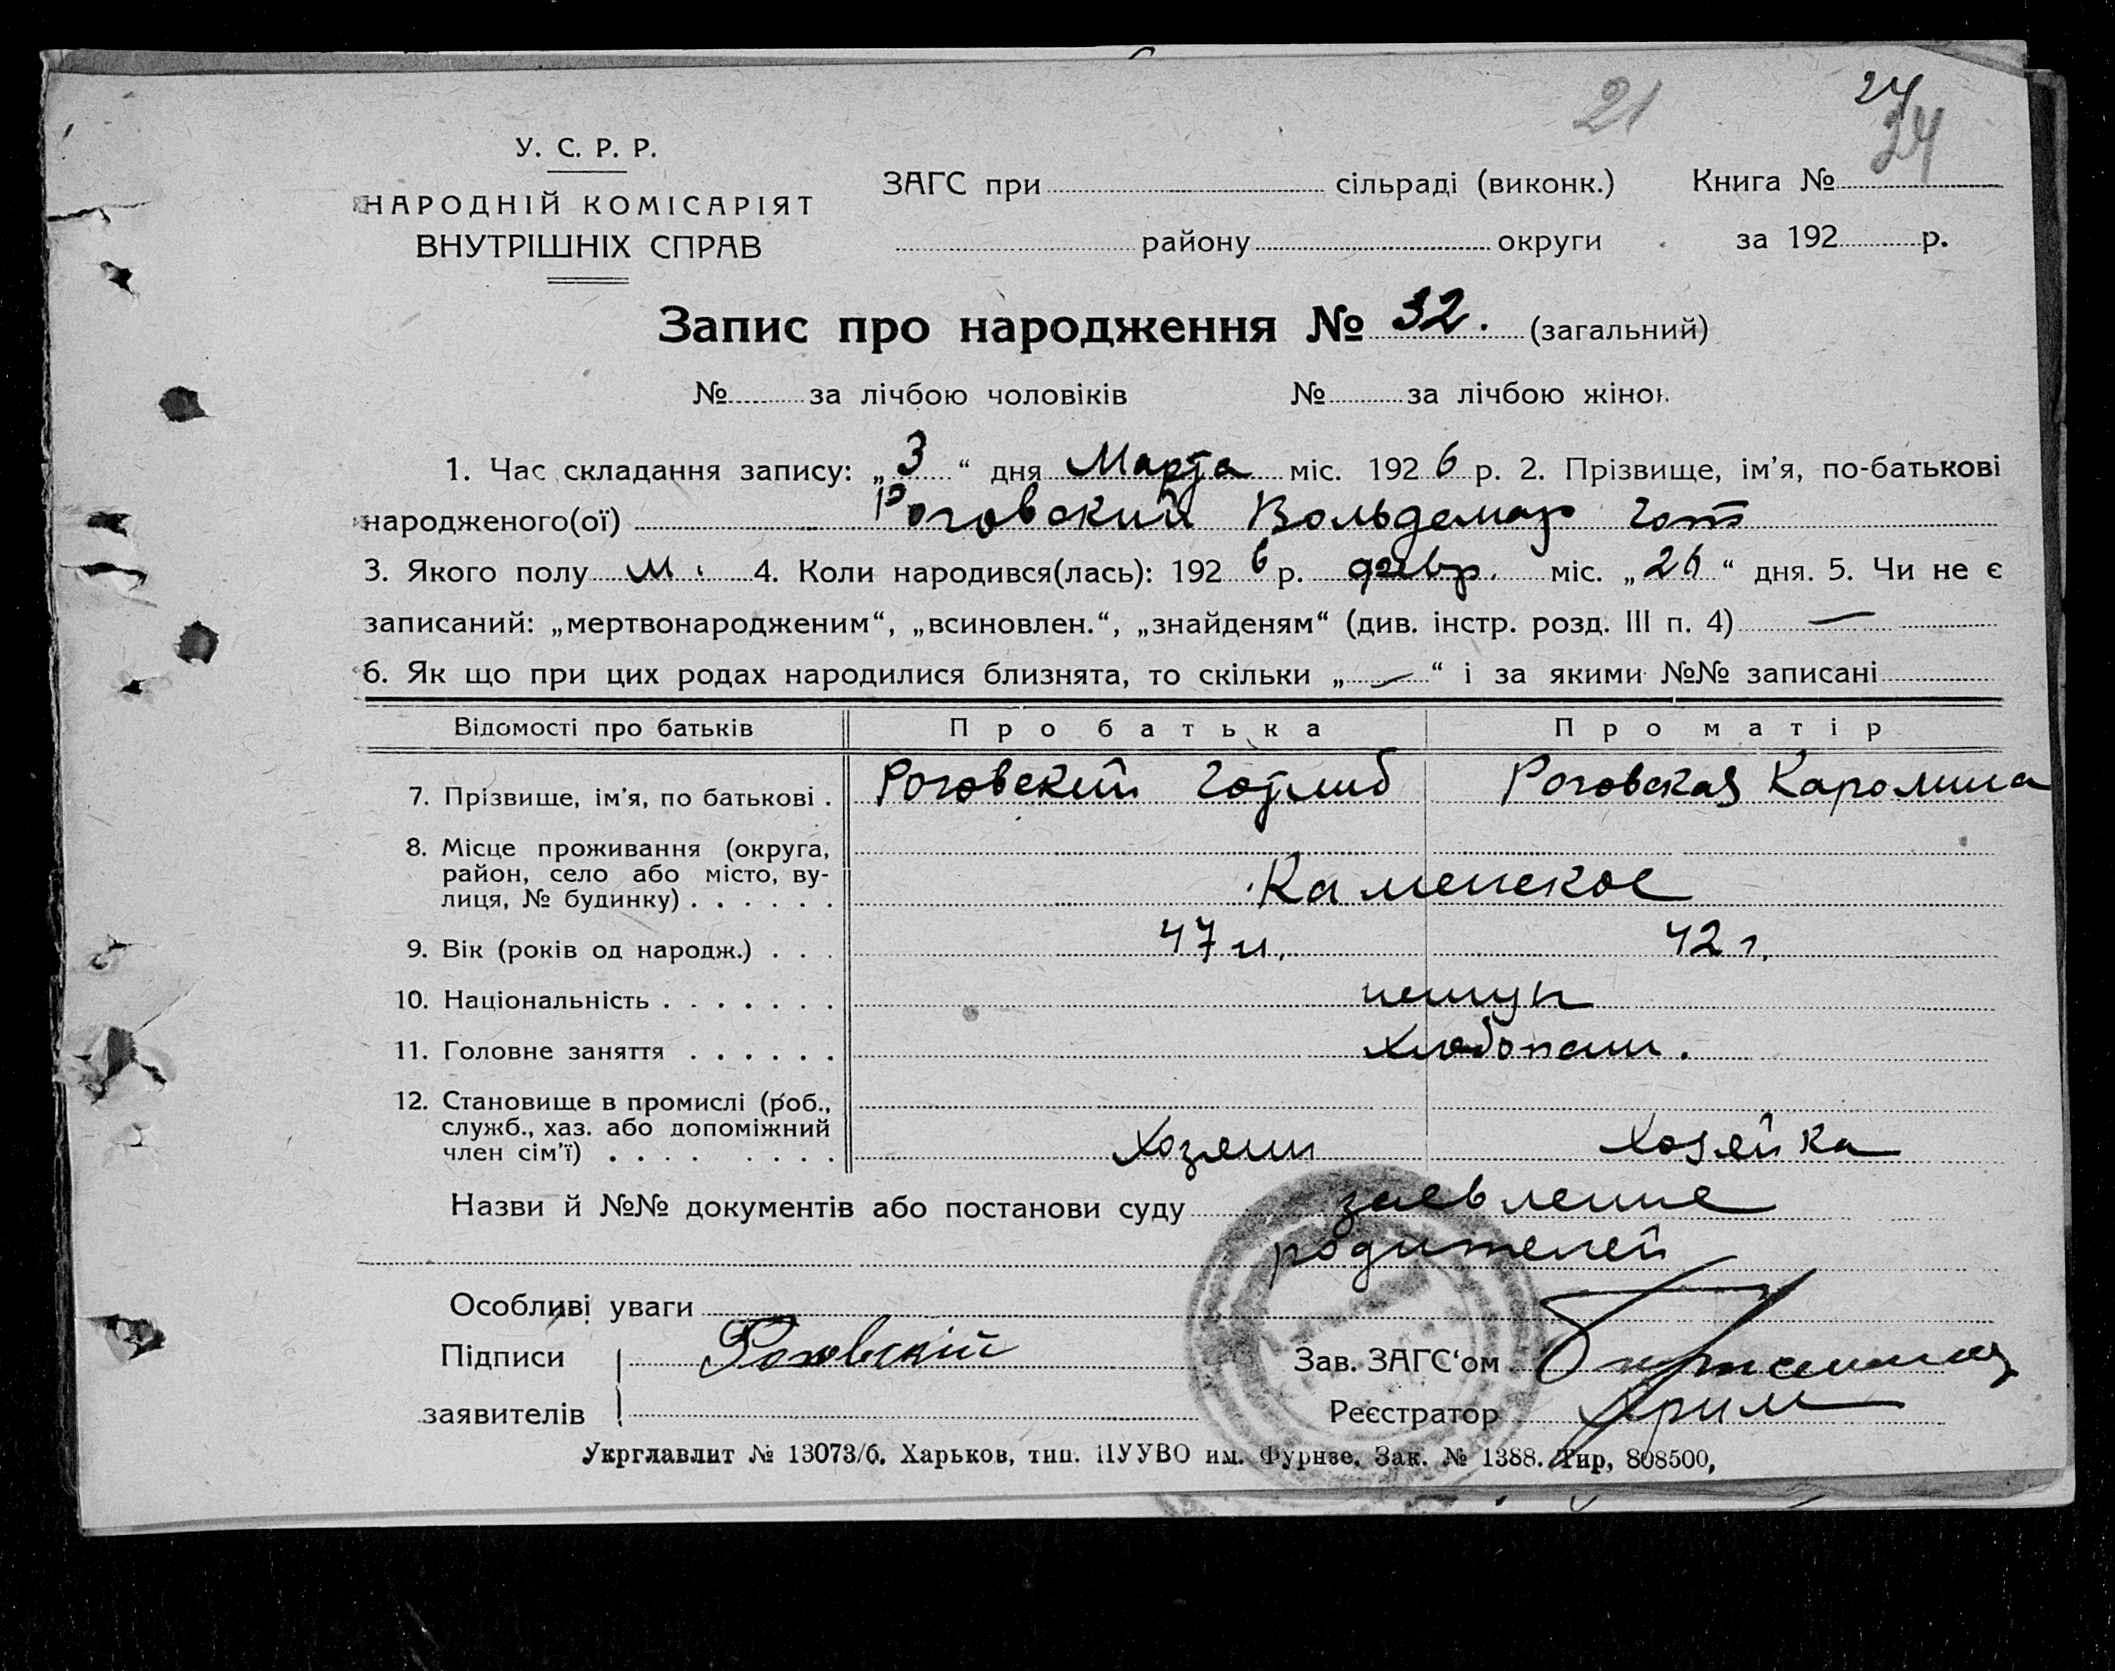 21 24
34
У. С. Р. Р.
НАРОДНІЙ КОМІСАРІЯТ
ВНУТРІШНІХ СПРАВ
ЗАГС при сільраді (виконк.) Книга №
району округи за 192 р.
Запис про народження № 32. (загальний)
№ за лічбою чоловіків № за лічбою жінок
1. Час складання запису: „3“ дня Марта міс. 1926 р. 2. Прізвище, ім’я, по-батькові
народженого(ої) Роговский Вольдемар Гот
3. Якого полу м. 4. Коли народився(лась): 1926 р. февр. міс. „26“ дня. 5. Чи не є
записаний: „мертвонародженим“, „всиновлен.“, „знайденям“ (див. інстр. розд. III п. 4) —
6. Як що при цих родах народилися близнята, то скільки „—“ і за якими №№ записані
Відомості про батьків Про батька Про матір
7. Прізвище, ім’я, по батькові . Роговский Готлиб Роговская Каролина
8. Місце проживання (округа,
район, село або місто, ву-
лиця, № будинку) . . . . . . Каменское
9. Вік (років од народж.) . . . 47 л. 42 г.
10. Національність . . . . . . .
11. Головне заняття . . . . . . хлебопаш.
12. Становище в промислі (роб.,
служб., хаз. або допоміжний
член сім’ї) . . . . . . . . хозяин хозяйка
Назви й №№ документів або постанови суду заевление
родителей
Особливі уваги
Підписи Роговскій Зав. ЗАГС‘ом
заявителів Реєстратор
Укрглавлит № 13073/б. Харьков, тип. ПУУВО им. Фрунзе. Зак. № 1388. Тир, 808500,